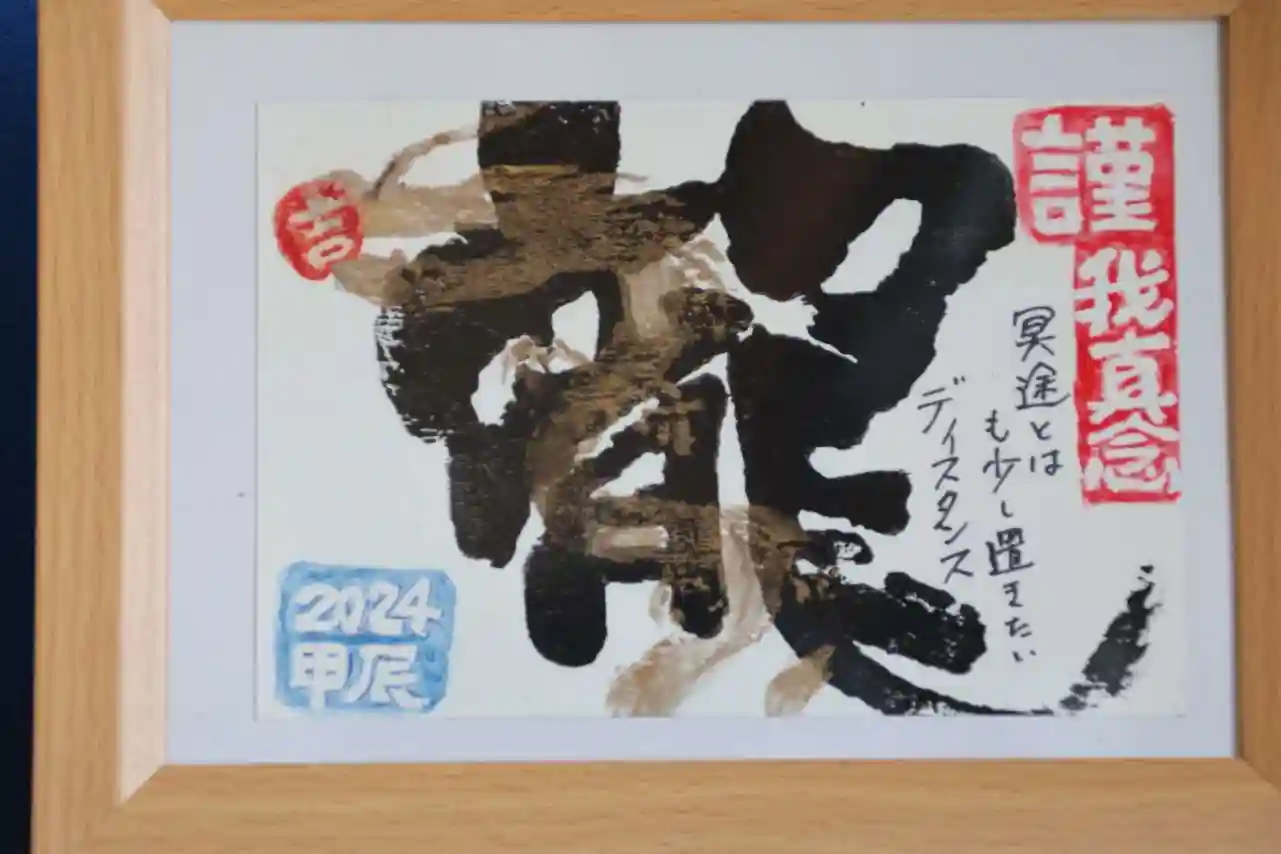 謹我真念
冥途とは
も少し置きたい
ディスタンス
龍
吉
2024
甲辰